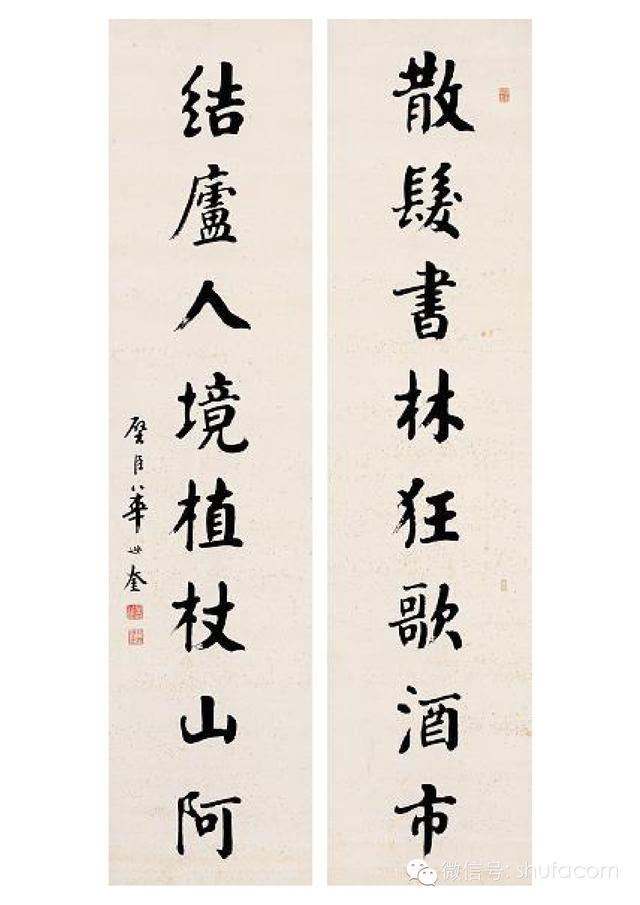 散髮書林狂歌酒市
結廬人境植杖山阿
璧臣華世奎
微信号: shufacom